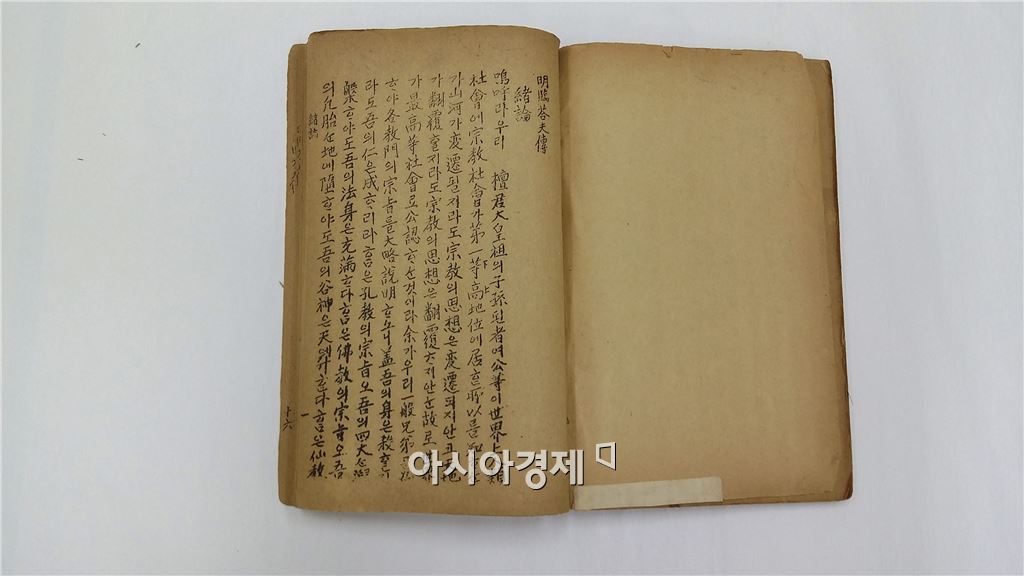 明臨荅夫傳
緖論
嗚呼라우리 檀君大皇祖의子孫된者여公等이世界上
社會에宗敎社會가第一等高地位에居한所以를
가山河가変遷될지라도宗敎의思想은変遷되지안코
가翻覆할지라도宗敎의思想은翻覆하지안는故로
가最高等社會로公認하는것이라余가우리一般兄弟
하야各敎門의宗旨를大略說明하노니盖吾의身은殺
라도吾의仁은成하리라함은孔敎의宗旨오吾의四大
하야도吾의法身은充滿하다함은佛敎의宗旨오吾
의凡胎는地에墮하야도吾의谷神은天에昇한다함은仙敎
緖論
十六
아시아경제